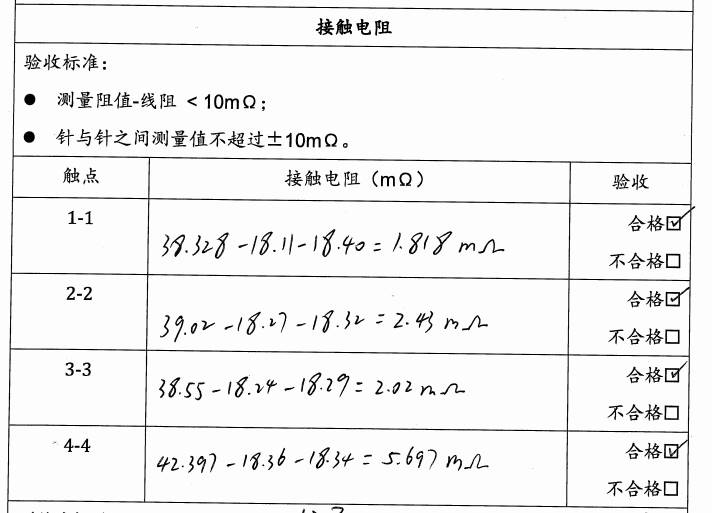 接触电阻
验收标准：
● 测量阻值-线阻 < 10mΩ；
● 针与针之间测量值不超过±10mΩ。
触点 接触电阻（mΩ） 验收
1-1 38.328 -18.11 -18.40 = 1.818 mΩ 合格☑
不合格□
2-2 39.02 -18.27 -18.32 = 2.43 mΩ 合格☑
不合格□
3-3 38.55 -18.24 -18.29 = 2.02 mΩ 合格☑
不合格□
4-4 42.397 -18.36 -18.34 = 5.697 mΩ 合格☑
不合格□